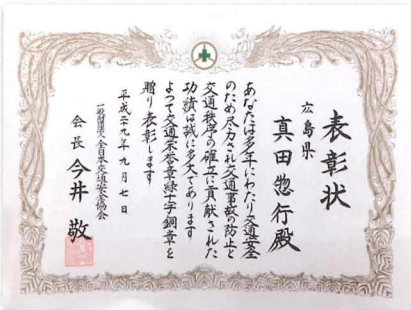 表彰状
広島県
真田惣行殿
あなたは多年にわたり交通安全
のため尽力され交通事故の防止と
交通秩序の確立に貢献された
功績は誠に多大であります
よつて交通栄誉章緑十字銅章を
贈り表彰します
平成二十九年九月七日
一般財団法人全日本交通安全協会
会長 今井 敬